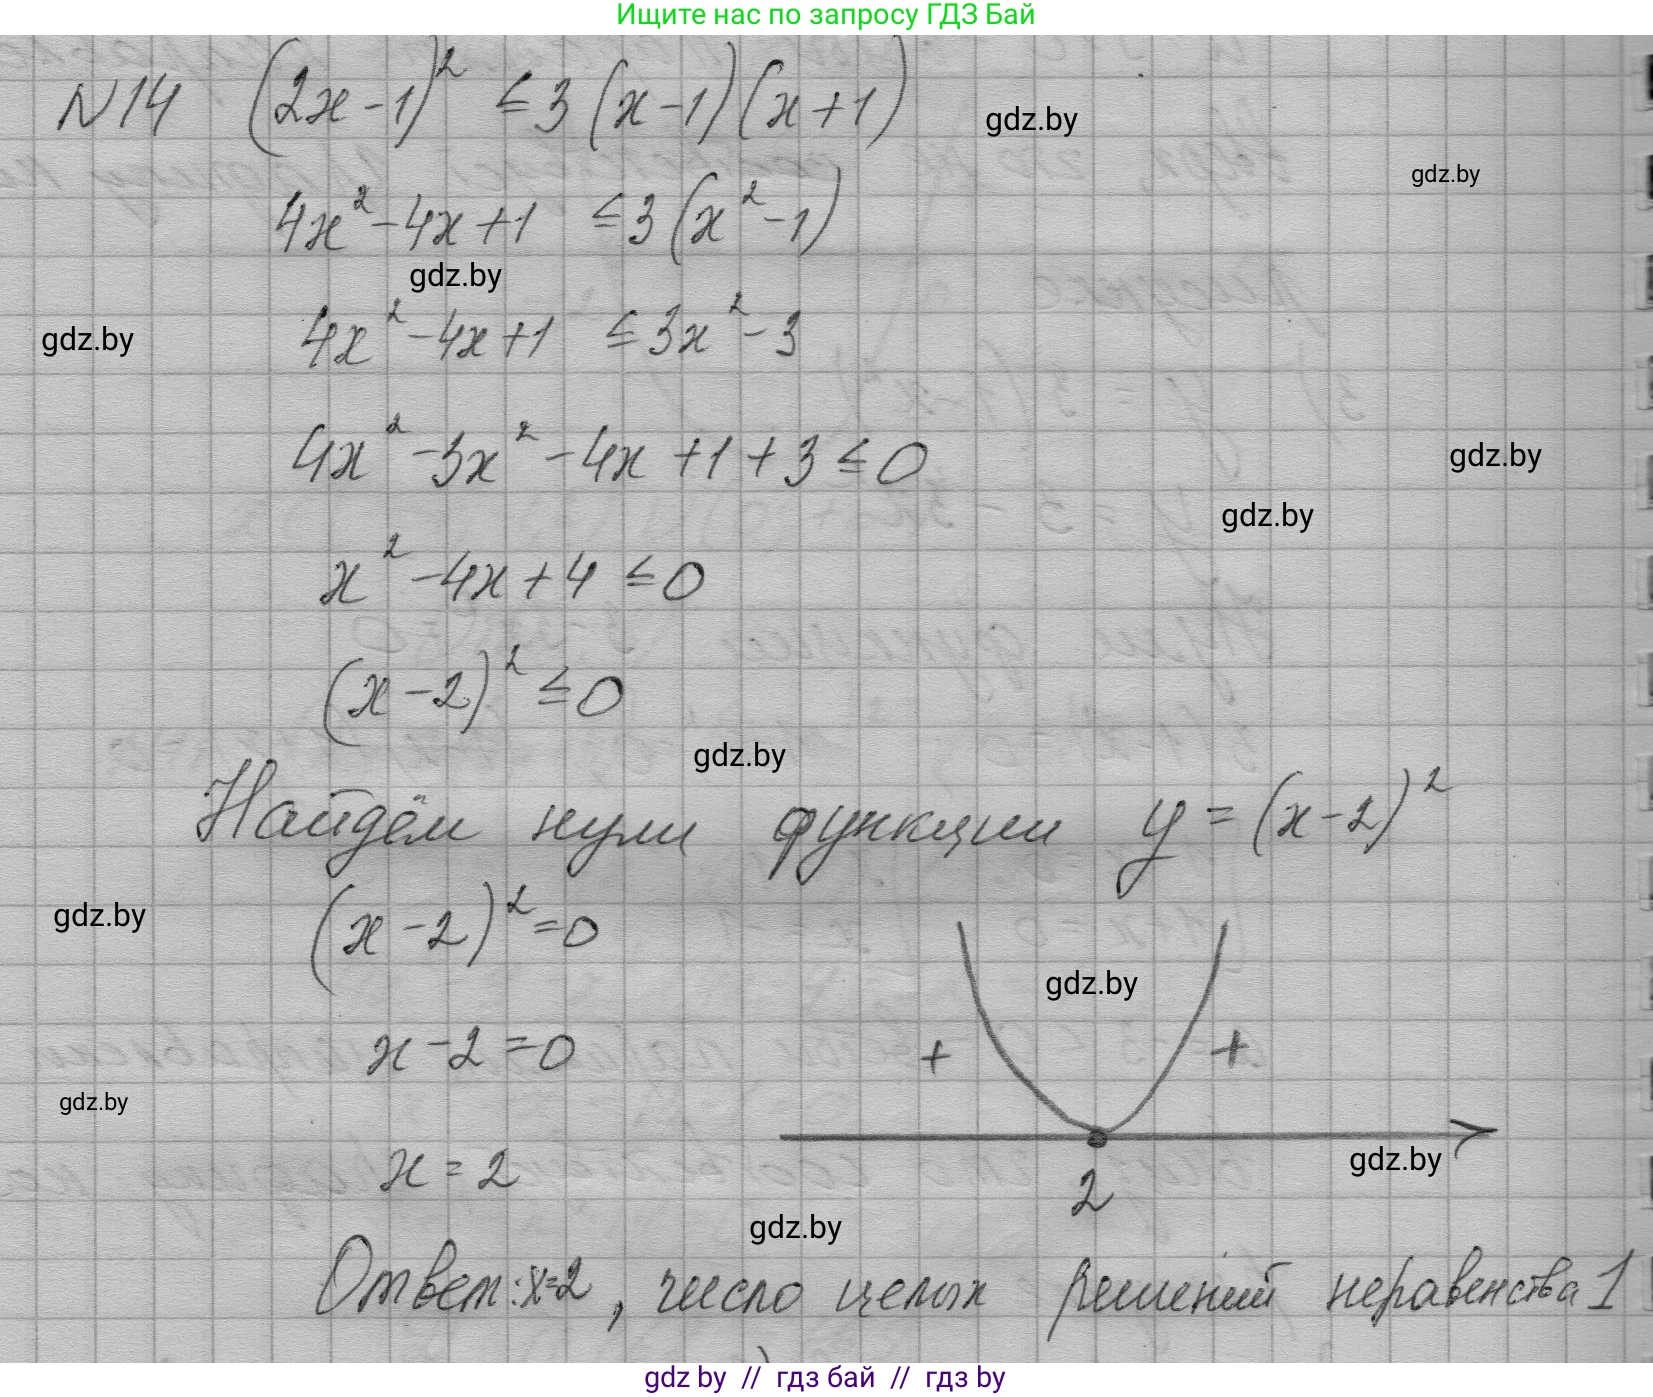 Ищите нас по запросу ГДЗ Бай
N14 (2x-1)² ≤ 3(x-1)(x+1)
gdz.by
gdz.by
4x²-4x+1 ≤ 3(x²-1)
gdz.by
gdz.by
4x²-4x+1 ≤ 3x²-3
4x²-3x²-4x+1+3 ≤ 0
gdz.by
gdz.by
x²-4x+4 ≤ 0
(x-2)² ≤ 0
gdz.by
Найдём нули функции y=(x-2)²
gdz.by
(x-2)²=0
gdz.by
x-2=0
+ +
gdz.by
gdz.by
x=2
2
gdz.by
Ответ: x=2, число целых решений неравенства 1
gdz by // гдз бай // гдз by